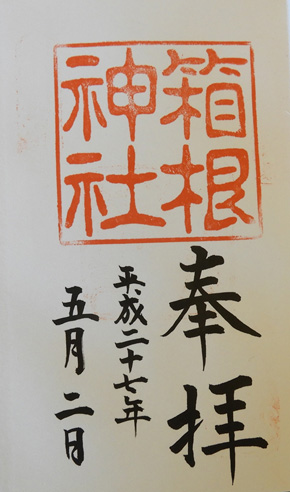 箱根
神社
奉拝
平成二十七年
五月二日